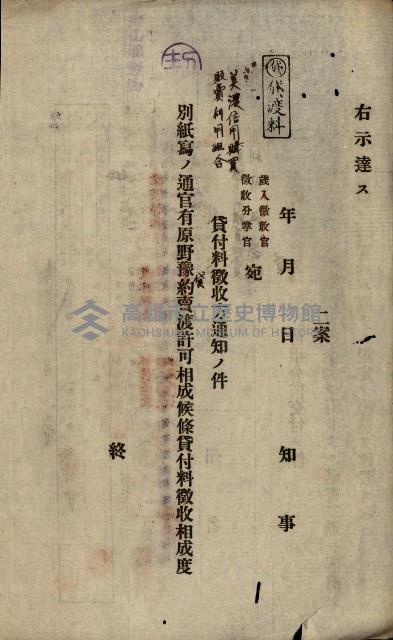 右示達ス
二案
年月日 知事
代渡料
歳入徴收官
徴收分掌官
宛
美濃信用購買
販賣利用組合
貸付料徴收通知ノ件
別紙寫ノ通官有原野豫約賣渡許可相成候條貸付料徴收相成度
終
高雄市立歷史博物館
KAOHSIUNG MUSEUM OF HISTORY